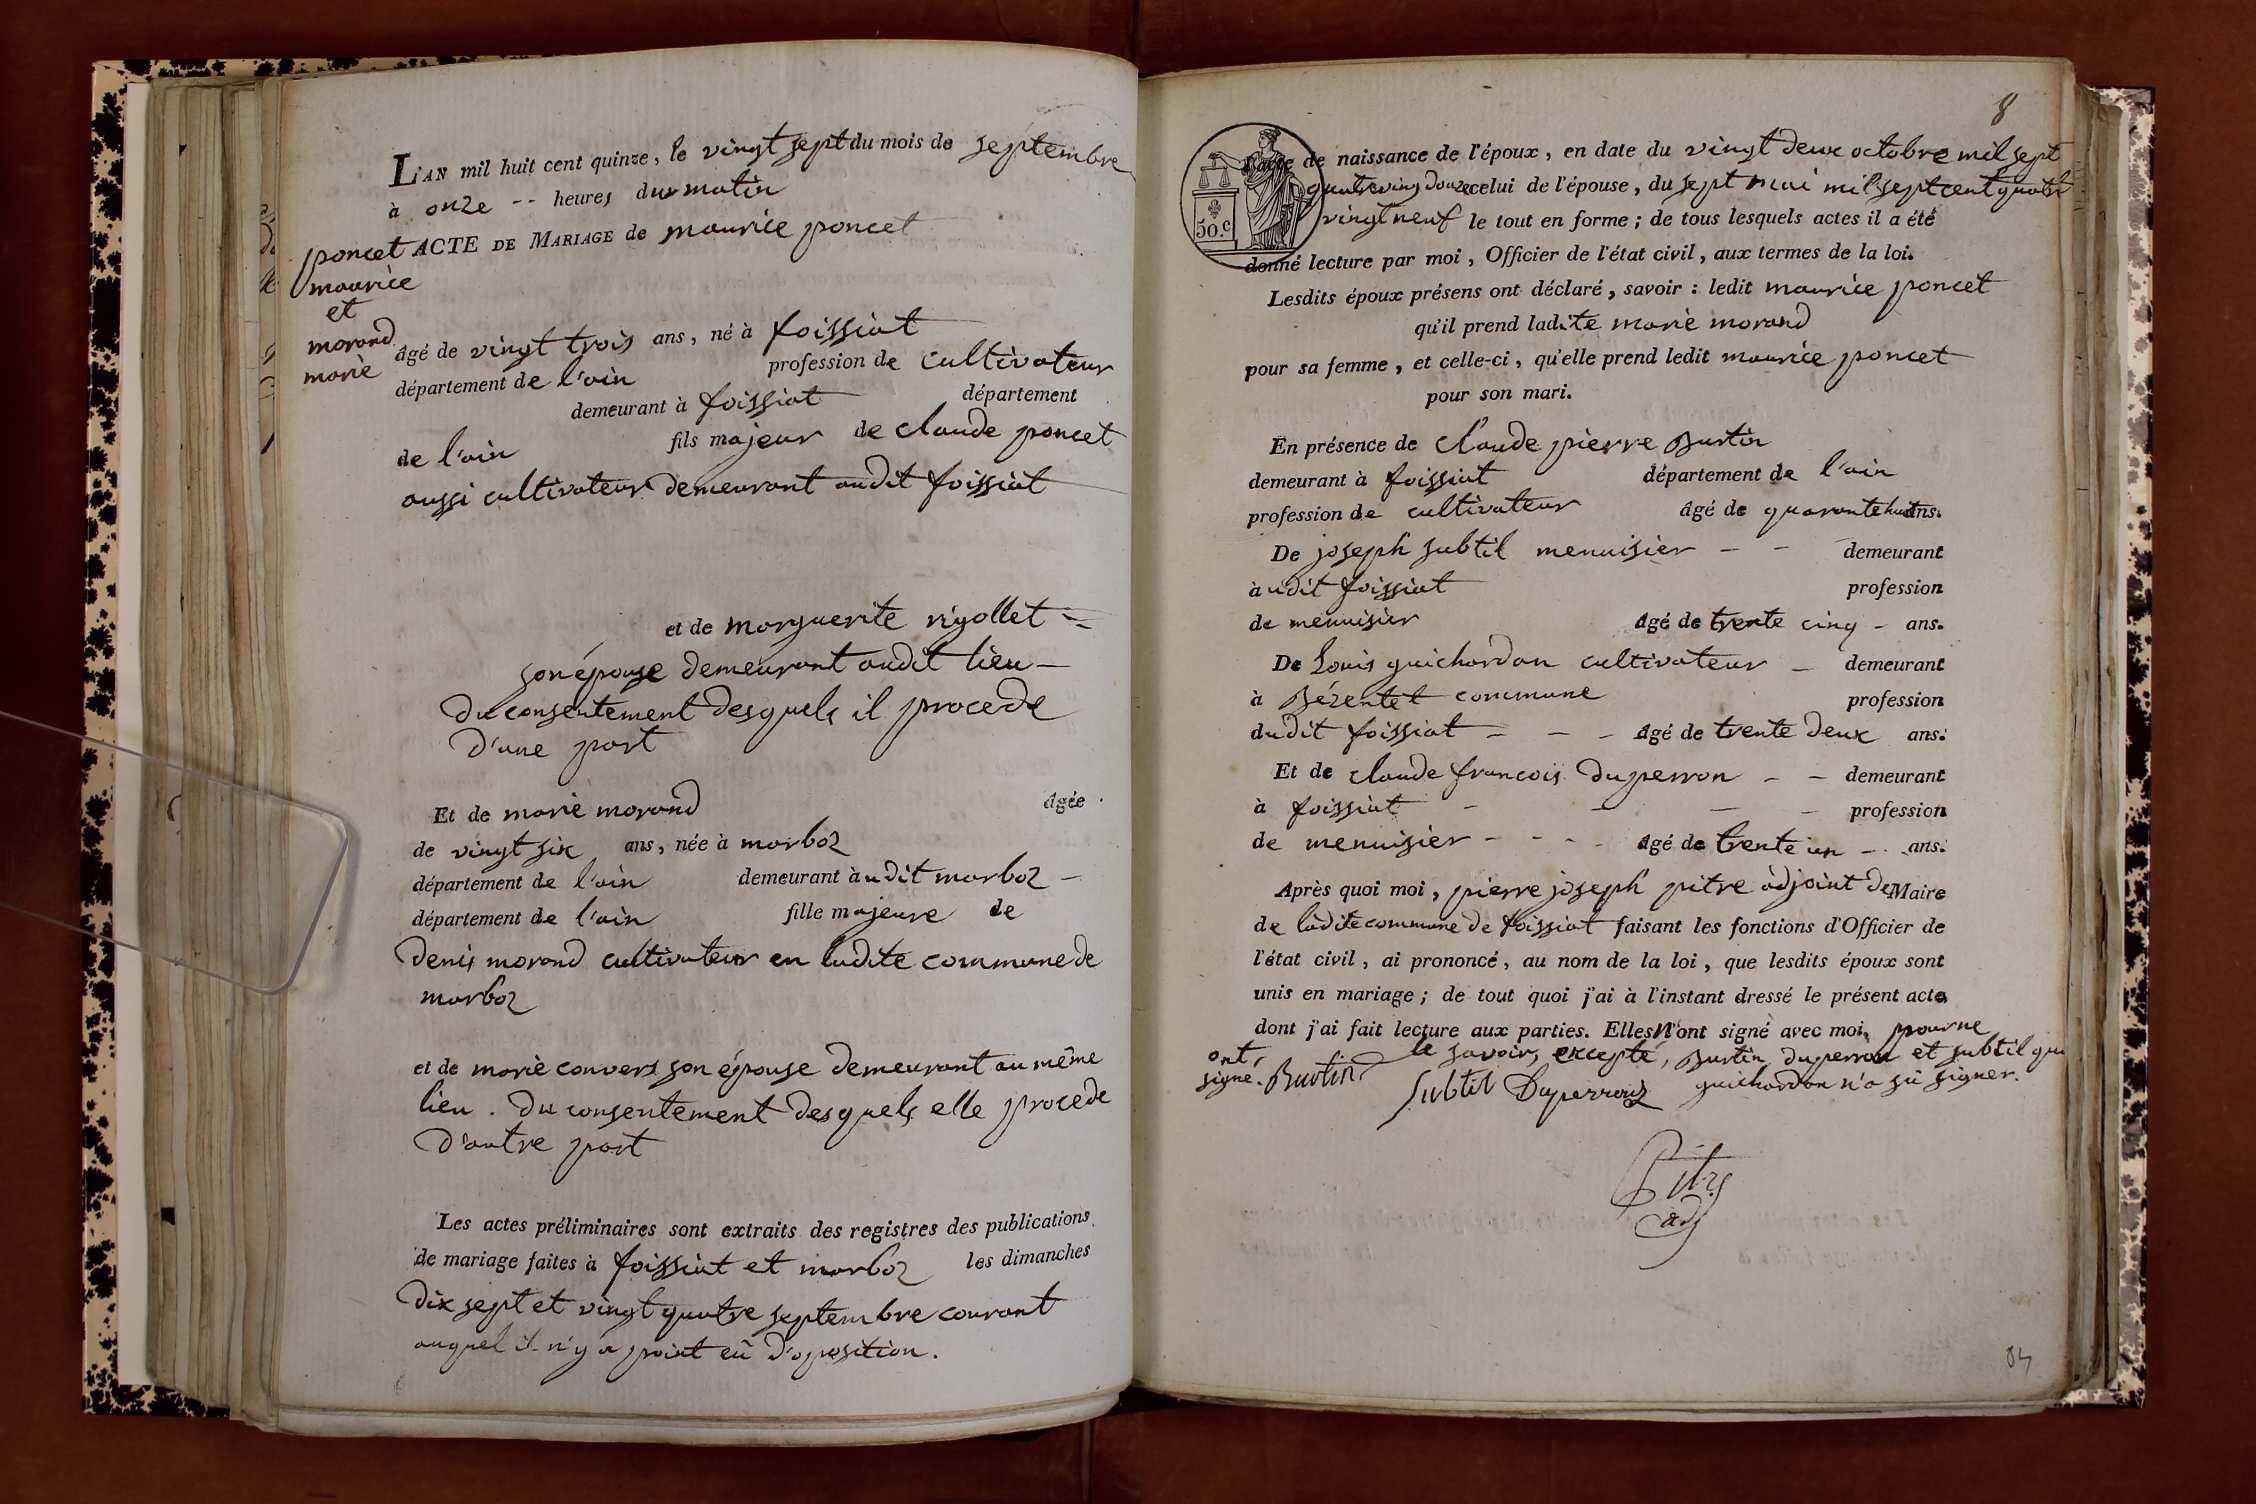 L'AN mil huit cent quinze, le vingt sept du mois de septembre
à onze -- heures du matin
ACTE DE MARIAGE de maurice poncet
poncet
maurice
et
morand
marie
âgé de vingt trois ans, né à foissiat
département de l'ain profession de cultivateur
demeurant à foissiat département
de l'ain fils majeur de claude poncet
aussi cultivateur demeurant audit foissiat
et de marguerite rigollet =
son épouse demeurant audit lieu —
du consentement desquels il procede
d'une part
Et de marie morand âgée
de vingt six ans, née à marboz
département de l'ain demeurant àudit marboz —
département de l'ain fille majeure de
denis morand cultivateur en ladite commune de
marboz
et de marie convers son épouse demeurant au même
lieu. du consentement desquels elle procede
d'autre part
Les actes préliminaires sont extraits des registres des publications
de mariage faites à foissiat et marboz les dimanches
dix sept et vingt quatre septembre courant
auquel il n'y a point eû d'oposition.
8
50.c
L'acte de naissance de l'époux, en date du vingt deux octobre mil sept
quatreving douze celui de l'épouse, du sept mai mil sept cent quatre
vingt neuf le tout en forme; de tous lesquels actes il a été
donné lecture par moi, Officier de l'état civil, aux termes de la loi.
Lesdits époux présens ont déclaré, savoir : ledit maurice poncet
qu'il prend ladite marie morand
pour sa femme, et celle-ci, qu'elle prend ledit maurice poncet
pour son mari.
En présence de claude pierre Burtin
demeurant à foissiat département de l'ain
profession de cultivateur âgé de quarante huit ans.
De joseph subtil menuisier — — demeurant
àudit foissiat profession
de menuisier âgé de trente cinq — ans.
De Louis guichardon cultivateur — demeurant
à Bézentet commune profession
dudit foissiat — — — âgé de trente deux ans.
Et de claude francois duperron — — demeurant
à foissiat — — — — profession
de menuisier - - - - âgé de trente un — ans.
Après quoi moi, pierre joseph pitre adjoint de Maire
de ladite commune de foissiat faisant les fonctions d'Officier de
l'état civil, ai prononcé, au nom de la loi, que lesdits époux sont
unis en mariage; de tout quoi j'ai à l'instant dressé le présent acte
dont j'ai fait lecture aux parties. Elles n'ont signé avec moi, pour ne
le savoir, excepté, Burtin, duperron et subtil qui
ont signé. guichardon n'a sû signer.
Burtin
Subtil Duperron
Pitre
adj
84